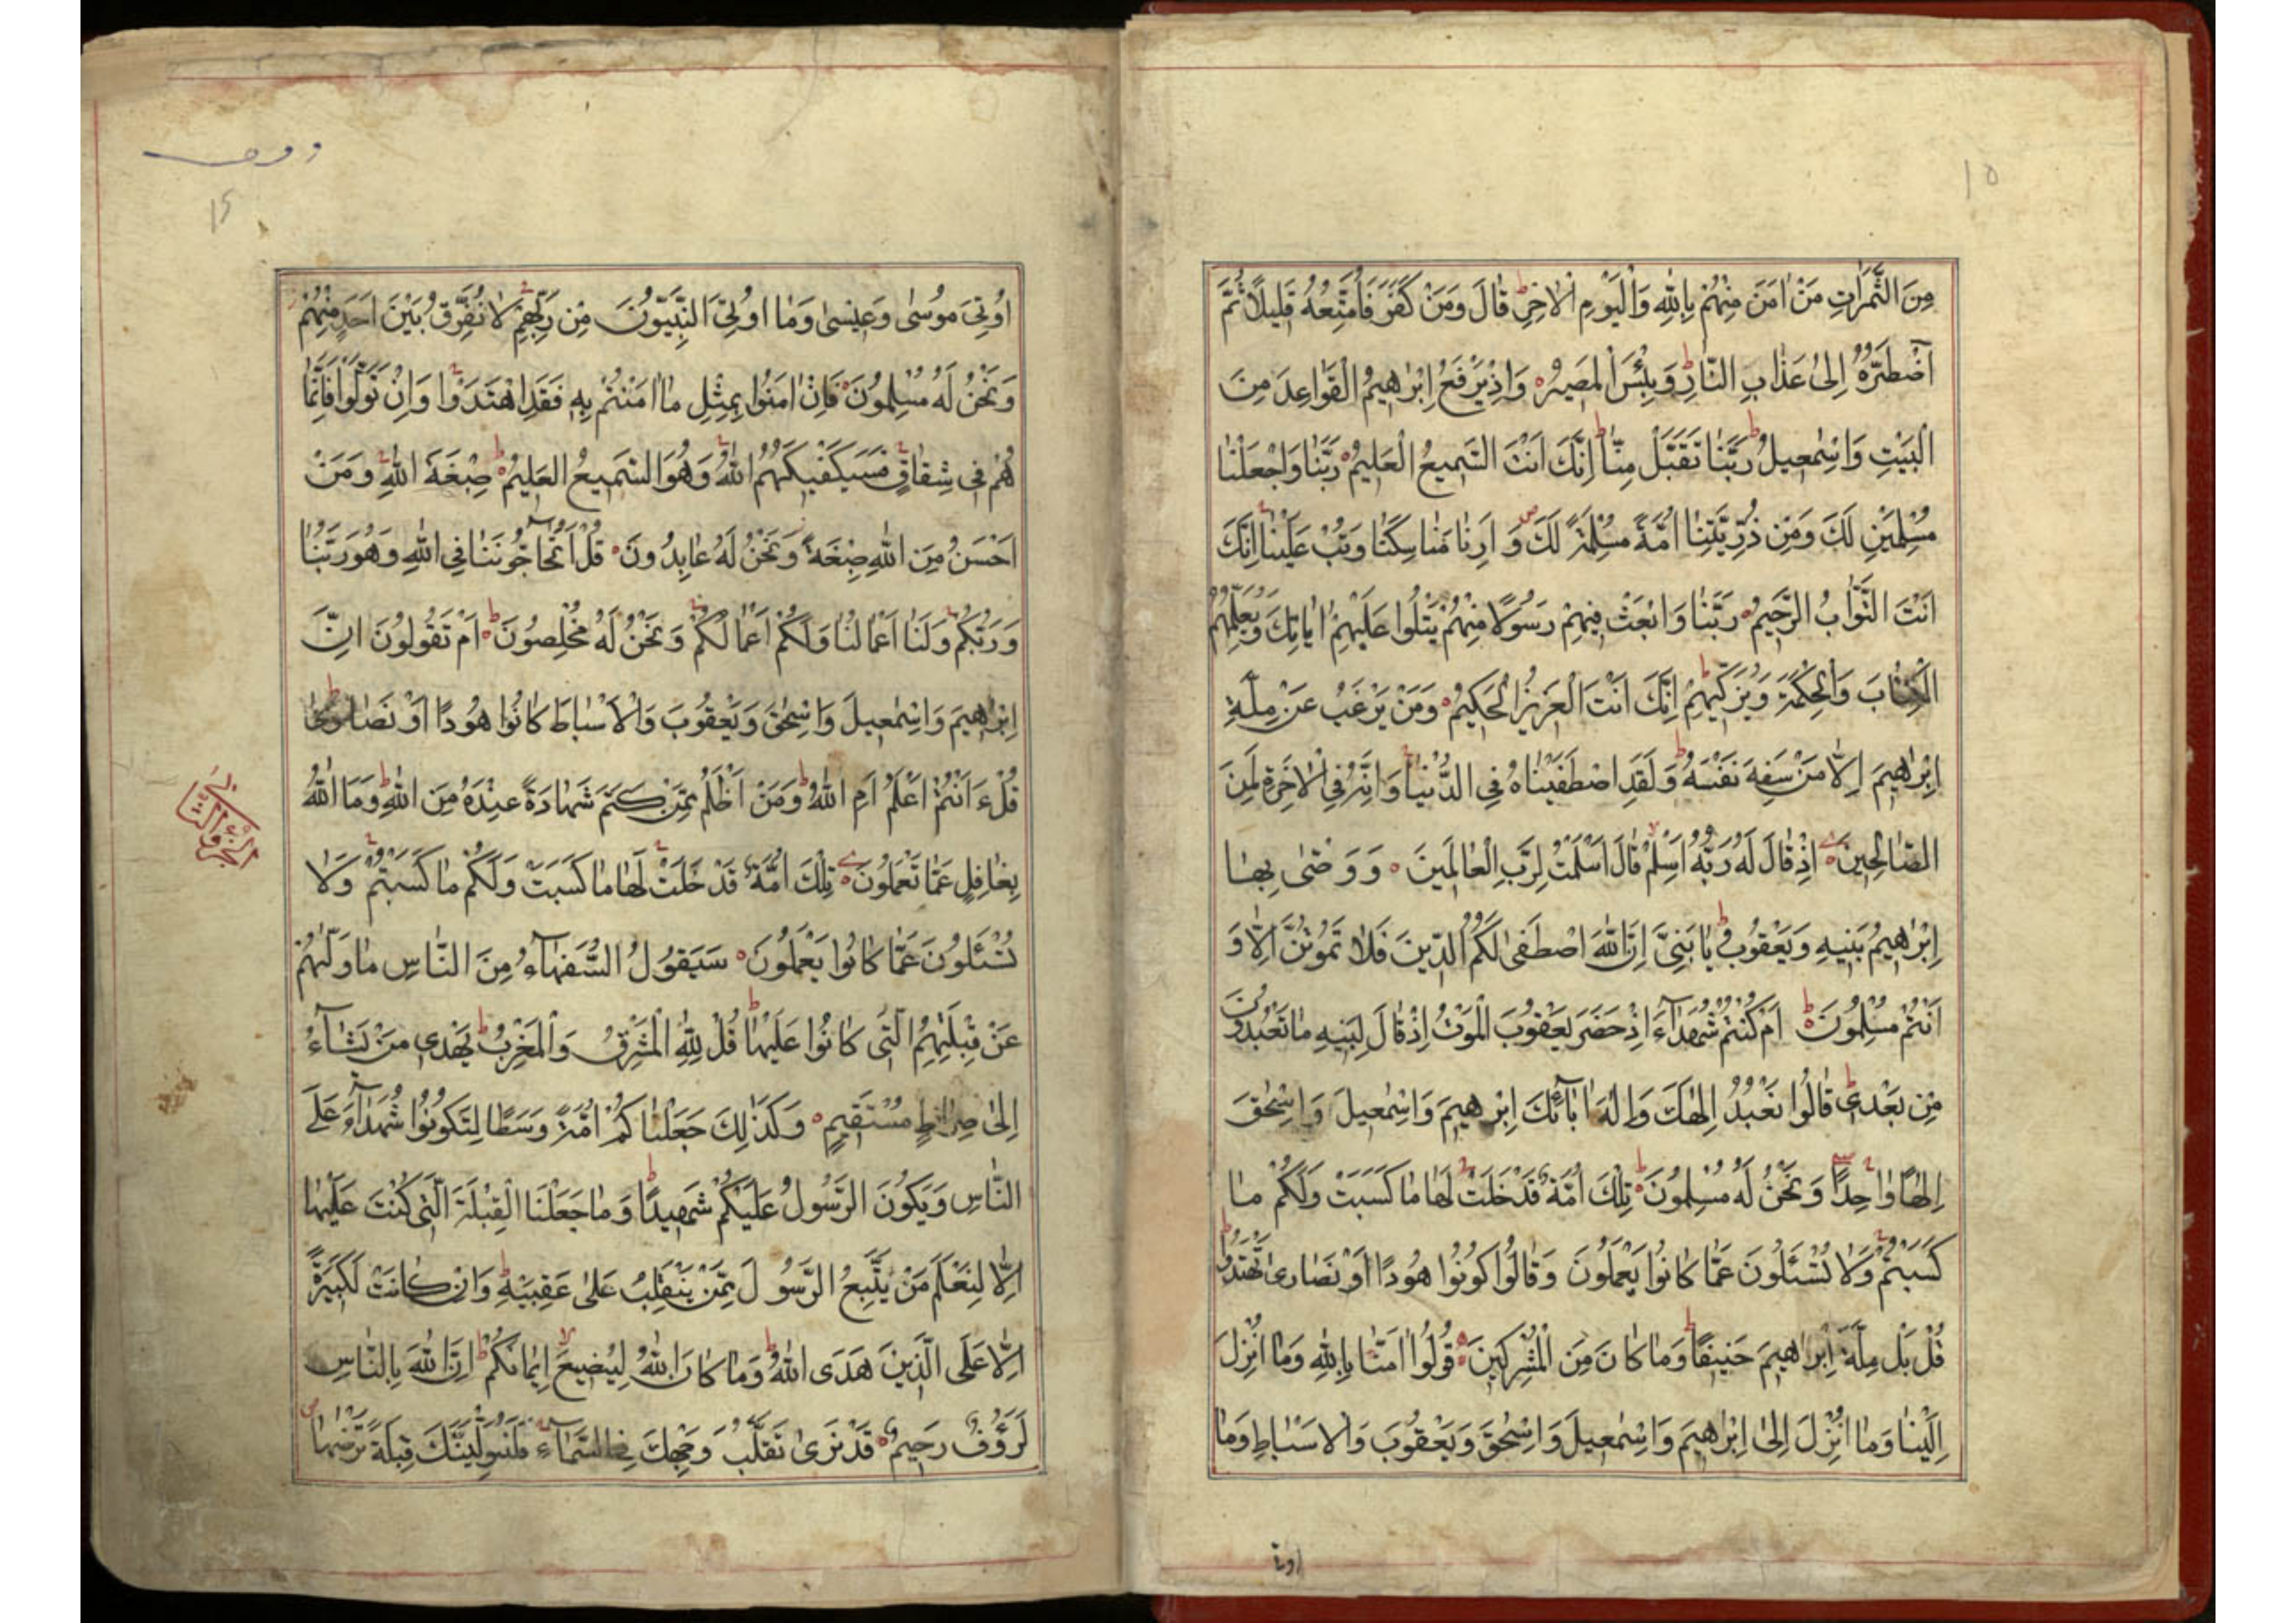 ١٥
مِنَ الثَّمَرَاتِ مَنْ اٰمَنَ مِنْهُمْ بِاللّٰهِ وَالْيَوْمِ الْاٰخِرِ ط قَالَ وَمَنْ كَفَرَ فَاُمَتِّعُهُ قَلِيلًا ثُمَّ
اَضْطَرُّهُ اِلىٰ عَذَابِ النَّارِ ط وَبِئْسَ الْمَصِيرُ ۝ وَاِذْ يَرْفَعُ اِبْرٰاهِيمُ الْقَوَاعِدَ مِنَ
الْبَيْتِ وَاِسْمٰعِيلُ ط رَبَّنَا تَقَبَّلْ مِنَّا ط اِنَّكَ اَنْتَ السَّمِيعُ الْعَلِيمُ ۝ رَبَّنَا وَاجْعَلْنَا
مُسْلِمَيْنِ لَكَ وَمِنْ ذُرِّيَّتِنَا اُمَّةً مُسْلِمَةً لَكَ ص وَ اَرِنَا مَنَاسِكَنَا وَتُبْ عَلَيْنَا ج اِنَّكَ
اَنْتَ التَّوَّابُ الرَّحِيمُ ۝ رَبَّنَا وَابْعَثْ فِيهِمْ رَسُولًا مِنْهُمْ يَتْلُوا عَلَيْهِمْ اٰيَاتِكَ وَيُعَلِّمُهُمُ
الْكِتَابَ وَالْحِكْمَةَ وَيُزَكِّيهِمْ ط اِنَّكَ اَنْتَ الْعَزِيزُ الْحَكِيمُ ۝ وَمَنْ يَرْغَبُ عَنْ مِلَّةِ
اِبْرٰاهِيمَ اِلَّا مَنْ سَفِهَ نَفْسَهُ ط وَلَقَدِ اصْطَفَيْنَاهُ فِي الدُّنْيَا ج وَاِنَّهُ فِي الْاٰخِرَةِ لَمِنَ
الصَّالِحِينَ ۝ اِذْ قَالَ لَهُ رَبُّهُ اَسْلِمْ لا قَالَ اَسْلَمْتُ لِرَبِّ الْعَالَمِينَ ۝ وَوَصّٰى بِهَا
اِبْرٰاهِيمُ بَنِيهِ وَيَعْقُوبُ ط يَا بَنِيَّ اِنَّ اللّٰهَ اصْطَفٰى لَكُمُ الدِّينَ فَلَا تَمُوتُنَّ اِلَّا وَ
اَنْتُمْ مُسْلِمُونَ ۝ ط اَمْ كُنْتُمْ شُهَدَآءَ اِذْ حَضَرَ يَعْقُوبَ الْمَوْتُ اِذْ قَالَ لِبَنِيهِ مَا تَعْبُدُونَ
مِنْ بَعْدِى ط قَالُوا نَعْبُدُ اِلٰهَكَ وَاِلٰهَ اٰبَآئِكَ اِبْرٰهِيمَ وَاِسْمٰعِيلَ وَاِسْحٰقَ
اِلٰهًا وَاحِدًا ج وَنَحْنُ لَهُ مُسْلِمُونَ ۝ تِلْكَ اُمَّةٌ قَدْ خَلَتْ ج لَهَا مَا كَسَبَتْ وَلَكُمْ مَا
كَسَبْتُمْ ج وَلَا تُسْئَلُونَ عَمَّا كَانُوا يَعْمَلُونَ وَقَالُوا كُونُوا هُودًا اَوْ نَصَارىٰ تَهْتَدُوا ط
قُلْ بَلْ مِلَّةَ اِبْرٰاهِيمَ حَنِيفًا ط وَمَا كَانَ مِنَ الْمُشْرِكِينَ ۝ قُولُوا اٰمَنَّا بِاللّٰهِ وَمَا اُنْزِلَ
اِلَيْنَا وَمَا اُنْزِلَ اِلىٰ اِبْرٰاهِيمَ وَاِسْمٰعِيلَ وَاِسْحٰقَ وَيَعْقُوبَ وَالْاَسْبَاطِ وَمَا
اوتى
١٦
اُوتِىَ مُوسٰى وَعِيسٰى وَمَا اُوتِىَ النَّبِيُّونَ مِنْ رَبِّهِمْ ج لَا نُفَرِّقُ بَيْنَ اَحَدٍ مِنْهُمْ ز
وَنَحْنُ لَهُ مُسْلِمُونَ ۝ فَاِنْ اٰمَنُوا بِمِثْلِ مَا اٰمَنْتُمْ بِهِ فَقَدِ اهْتَدَوْا ج وَاِنْ تَوَلَّوْا فَاِنَّمَا
هُمْ فِى شِقَاقٍ ج فَسَيَكْفِيكَهُمُ اللّٰهُ ج وَهُوَ السَّمِيعُ الْعَلِيمُ ۝ ط صِبْغَةَ اللّٰهِ ج وَمَنْ
اَحْسَنُ مِنَ اللّٰهِ صِبْغَةً ز وَنَحْنُ لَهُ عَابِدُونَ ۝ قُلْ اَتُحَآجُّونَنَا فِى اللّٰهِ وَهُوَ رَبُّنَا
وَرَبُّكُمْ ج وَلَنَا اَعْمَالُنَا وَلَكُمْ اَعْمَالُكُمْ ج وَنَحْنُ لَهُ مُخْلِصُونَ ۝ ط اَمْ تَقُولُونَ اِنَّ
اِبْرٰاهِيمَ وَاِسْمٰعِيلَ وَاِسْحٰقَ وَيَعْقُوبَ وَالْاَسْبَاطَ كَانُوا هُودًا اَوْ نَصَارىٰ ط
قُلْ ءَاَنْتُمْ اَعْلَمُ اَمِ اللّٰهُ ط وَمَنْ اَظْلَمُ مِمَّنْ كَتَمَ شَهَادَةً عِنْدَهُ مِنَ اللّٰهِ ط وَمَا اللّٰهُ
بِغَافِلٍ عَمَّا تَعْمَلُونَ ۝ تِلْكَ اُمَّةٌ قَدْ خَلَتْ ج لَهَا مَا كَسَبَتْ وَلَكُمْ مَا كَسَبْتُمْ ج وَلَا
تُسْئَلُونَ عَمَّا كَانُوا يَعْمَلُونَ ۝ سَيَقُولُ السُّفَهَآءُ مِنَ النَّاسِ مَا وَلّٰيهُمْ
عَنْ قِبْلَتِهِمُ الَّتِى كَانُوا عَلَيْهَا ط قُلْ لِلّٰهِ الْمَشْرِقُ وَالْمَغْرِبُ ط يَهْدِى مَنْ يَشَآءُ
اِلىٰ صِرَاطٍ مُسْتَقِيمٍ ۝ وَكَذٰلِكَ جَعَلْنَاكُمْ اُمَّةً وَسَطًا لِتَكُونُوا شُهَدَآءَ عَلَى
النَّاسِ وَيَكُونَ الرَّسُولُ عَلَيْكُمْ شَهِيدًا ط وَمَا جَعَلْنَا الْقِبْلَةَ الَّتِى كُنْتَ عَلَيْهَا
اِلَّا لِنَعْلَمَ مَنْ يَتَّبِعُ الرَّسُولَ مِمَّنْ يَنْقَلِبُ عَلىٰ عَقِبَيْهِ ط وَاِنْ كَانَتْ لَكَبِيرَةً
اِلَّا عَلَى الَّذِينَ هَدَى اللّٰهُ ط وَمَا كَانَ اللّٰهُ لِيُضِيعَ اِيمَانَكُمْ ط اِنَّ اللّٰهَ بِالنَّاسِ
لَرَؤُفٌ رَحِيمٌ ۝ قَدْ نَرىٰ تَقَلُّبَ وَجْهِكَ فِى السَّمَآءِ ج فَلَنُوَلِّيَنَّكَ قِبْلَةً تَرْضٰيهَا ص
الجزو الثانى